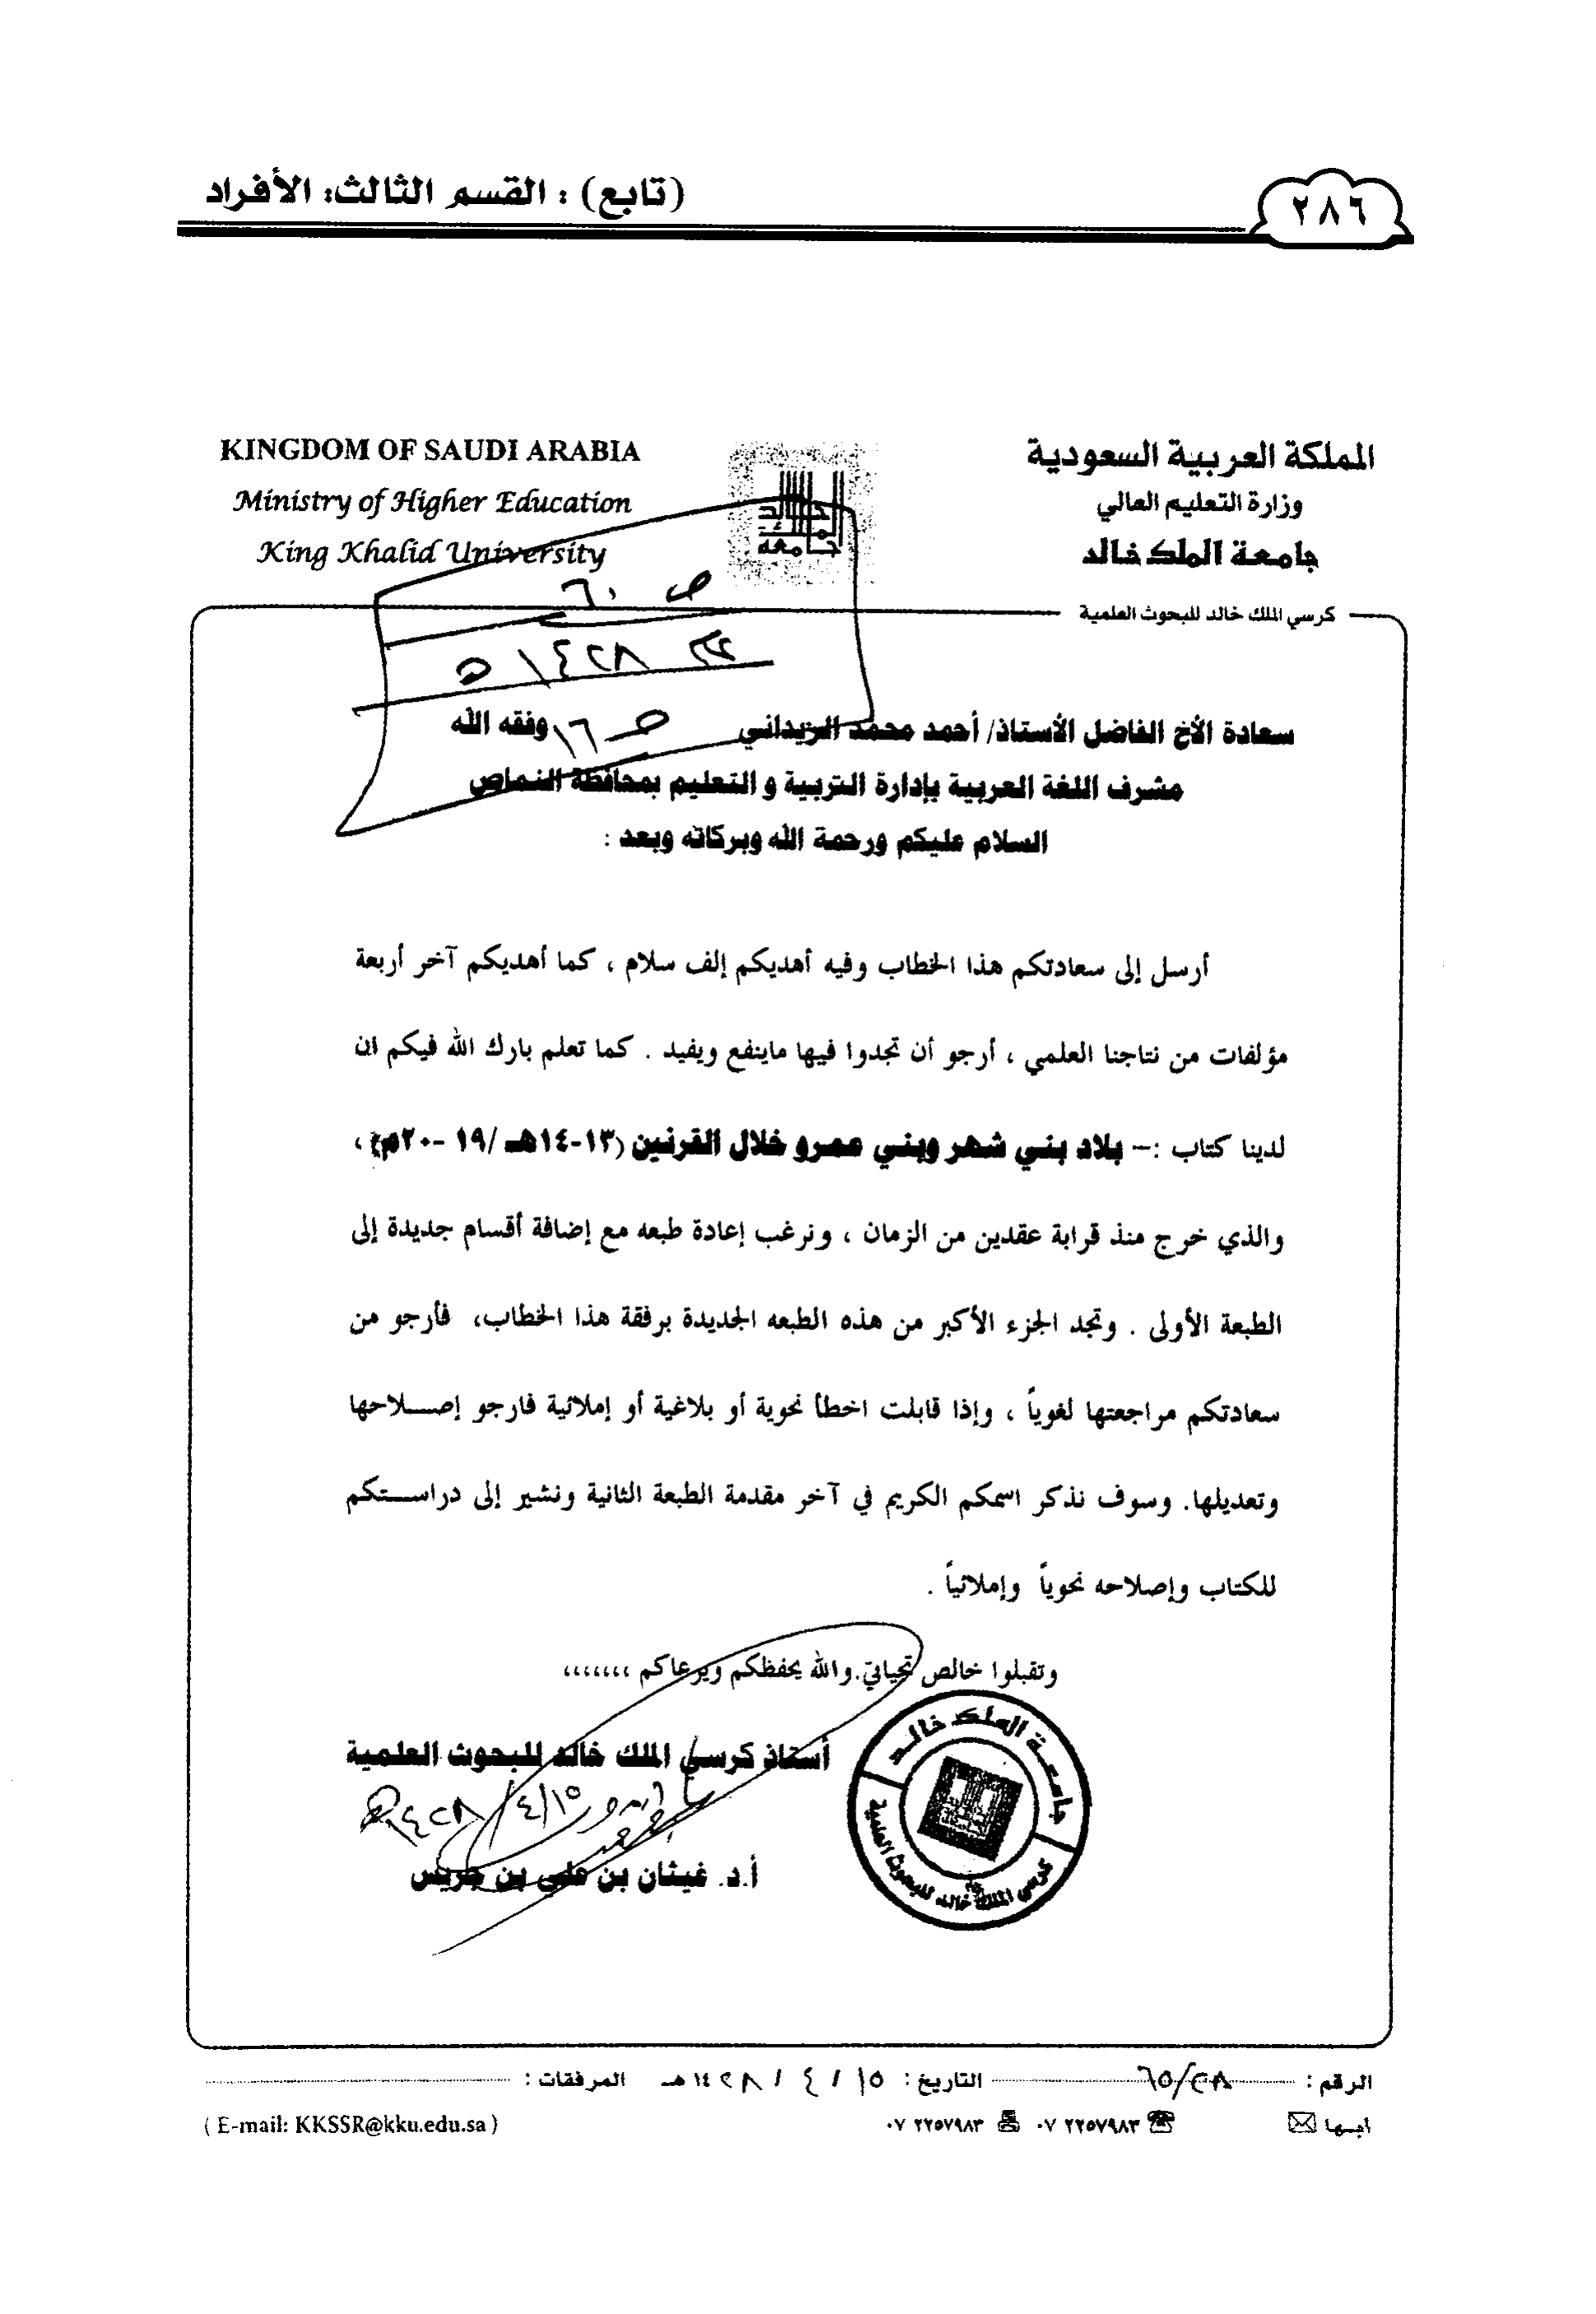 ٢٨٦
(تابع) : القسم الثالث: الأفراد
KINGDOM OF SAUDI ARABIA
Ministry of Higher Education
King Khalid University
المملكة العربية السعودية
وزارة التعليم العالي
جامعة الملك خالد
كرسي الملك خالد للبحوث العلمية
ص ٦٠
١٤٢٨ هـ
ص ١٦
سعادة الأخ الفاضل الأستاذ/ أحمد محمد الزيداني وفقه الله
مشرف اللغة العربية بإدارة التربية و التعليم بمحافظة النماص
السلام عليكم ورحمة الله وبركاته وبعد :
أرسل إلى سعادتكم هذا الخطاب وفيه أهديكم إلف سلام ، كما أهديكم آخر أربعة
مؤلفات من نتاجنا العلمي ، أرجو أن تجدوا فيها ماينفع ويفيد . كما تعلم بارك الله فيكم ان
لدينا كتاب :– بلاد بني شهر وبني عمرو خلال القرنين (١٣-١٤هـ /١٩ -٢٠م) ،
والذي خرج منذ قرابة عقدين من الزمان ، ونرغب إعادة طبعه مع إضافة أقسام جديدة إلى
الطبعة الأولى . وتجد الجزء الأكبر من هذه الطبعه الجديدة برفقة هذا الخطاب، فأرجو من
سعادتكم مراجعتها لغوياً ، وإذا قابلت اخطأ نحوية أو بلاغية أو إملائية فارجو إصـــلاحها
وتعديلها. وسوف نذكر اسمكم الكريم في آخر مقدمة الطبعة الثانية ونشير إلى دراســتكم
للكتاب وإصلاحه نحوياً وإملائياً .
وتقبلوا خالص تحياتي.والله يحفظكم ويرعاكم ،،،،،،،
أستاذ كرسي الملك خالد للبحوث العلمية
١٥/٤/١٤٢٨هـ
أ.د. غيثان بن علي بن جريس
جامعة الملك خالد
كرسي الملك خالد للبحوث العلمية
الرقم : ٦٥/٢٨ التاريخ : ١٥ / ٤ / ١٤٢٨ هـ المرفقات :
أبها ٠٧ ٢٢٥٧٩٨٣ ٠٧ ٢٢٥٧٩٨٣
( E-mail: KKSSR@kku.edu.sa )